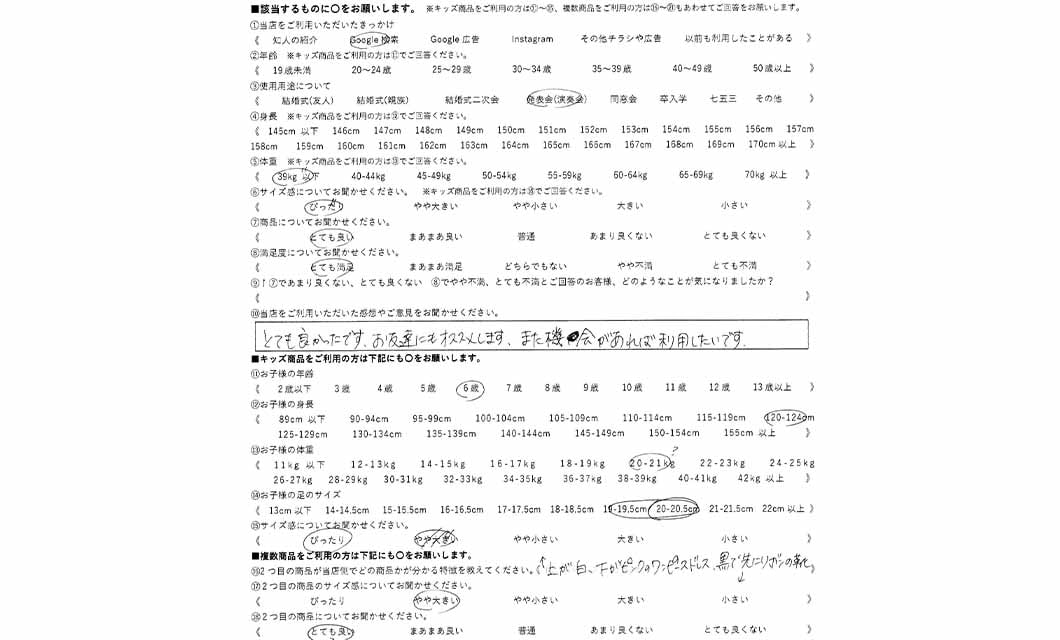 ■該当するものに〇をお願いします。 ※キッズ商品をご利用の方は⑪～⑮、複数商品をご利用の方は⑯～⑳もあわせてご回答をお願いします。
①当店をご利用いただいたきっかけ
《 知人の紹介 Google 検索 Google 広告 Instagram その他チラシや広告 以前も利用したことがある 》
②年齢 ※キッズ商品をご利用の方は⑪でご回答ください。
《 19歳未満 20～24歳 25～29歳 30～34歳 35～39歳 40～49歳 50歳以上 》
③使用用途について
《 結婚式(友人) 結婚式(親族) 結婚式二次会 発表会(演奏会) 同窓会 卒入学 七五三 その他 》
④身長 ※キッズ商品をご利用の方は⑫でご回答ください。
《 145cm 以下 146cm 147cm 148cm 149cm 150cm 151cm 152cm 153cm 154cm 155cm 156cm 157cm
158cm 159cm 160cm 161cm 162cm 163cm 164cm 165cm 166cm 167cm 168cm 169cm 170cm 以上 》
⑤体重 ※キッズ商品をご利用の方は⑬でご回答ください。
《 39kg 以下 40-44kg 45-49kg 50-54kg 55-59kg 60-64kg 65-69kg 70kg 以上 》
⑥サイズ感についてお聞かせください。 ※キッズ商品をご利用の方は⑮でご回答ください。
《 ぴったり やや大きい やや小さい 大きい 小さい 》
⑦商品についてお聞かせください。
《 とても良い まあまあ良い 普通 あまり良くない とても良くない 》
⑧満足度についてお聞かせください。
《 とても満足 まあまあ満足 どちらでもない やや不満 とても不満 》
⑨↑⑦であまり良くない、とても良くない ⑧でやや不満、とても不満とご回答のお客様、どのようなことが気になりましたか?
《 》
⑩当店をご利用いただいた感想やご意見をお聞かせください。
とても良かったです。お友達にもオススメします、また機会があれば利用したいです。
■キッズ商品をご利用の方は下記にも〇をお願いします。
⑪お子様の年齢
《 2歳以下 3歳 4歳 5歳 6歳 7歳 8歳 9歳 10歳 11歳 12歳 13歳以上 》
⑫お子様の身長
《 89cm 以下 90-94cm 95-99cm 100-104cm 105-109cm 110-114cm 115-119cm 120-124cm
125-129cm 130-134cm 135-139cm 140-144cm 145-149cm 150-154cm 155cm 以上 》
⑬お子様の体重 ?
《 11kg 以下 12-13kg 14-15kg 16-17kg 18-19kg 20-21kg 22-23kg 24-25kg
26-27kg 28-29kg 30-31kg 32-33kg 34-35kg 36-37kg 38-39kg 40-41kg 42kg 以上 》
⑭お子様の足のサイズ
《 13cm 以下 14-14.5cm 15-15.5cm 16-16.5cm 17-17.5cm 18-18.5cm 19-19.5cm 20-20.5cm 21-21.5cm 22cm 以上 》
⑮サイズ感についてお聞かせください。
《 ぴったり やや大きい やや小さい 大きい 小さい 》
■複数商品をご利用の方は下記にも〇をお願いします。
⑯2つ目の商品が当店側でどの商品かが分かる特徴を教えてください。《↑上が白、下がピンクのワンピースドレス、黒で先にリボンの靴》
⑰2つ目の商品のサイズ感についてお聞かせください。
《 ぴったり やや大きい やや小さい 大きい 小さい 》
⑱2つ目の商品についてお聞かせください。
《 とても良い まあまあ良い 普通 あまり良くない とても良くない 》